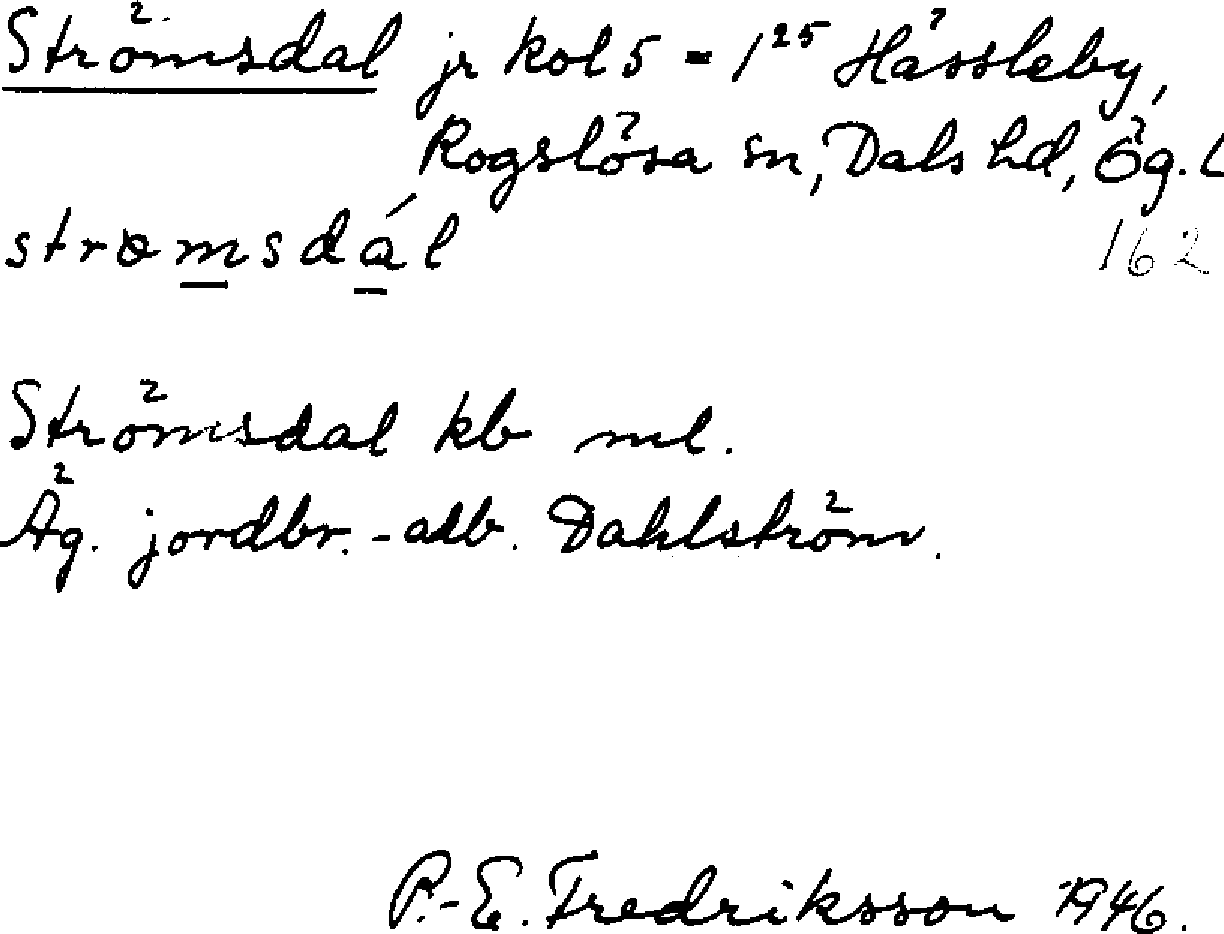 Strömsdal jr kol 5 = 1²⁵ Hässleby,
Rogslösa sn, Dals hd, Ög. l
strømsdál
162
Strömsdal kb ml.
Äg. jordbr.-arb. Dahlström.
P.-E. Fredriksson 1946.